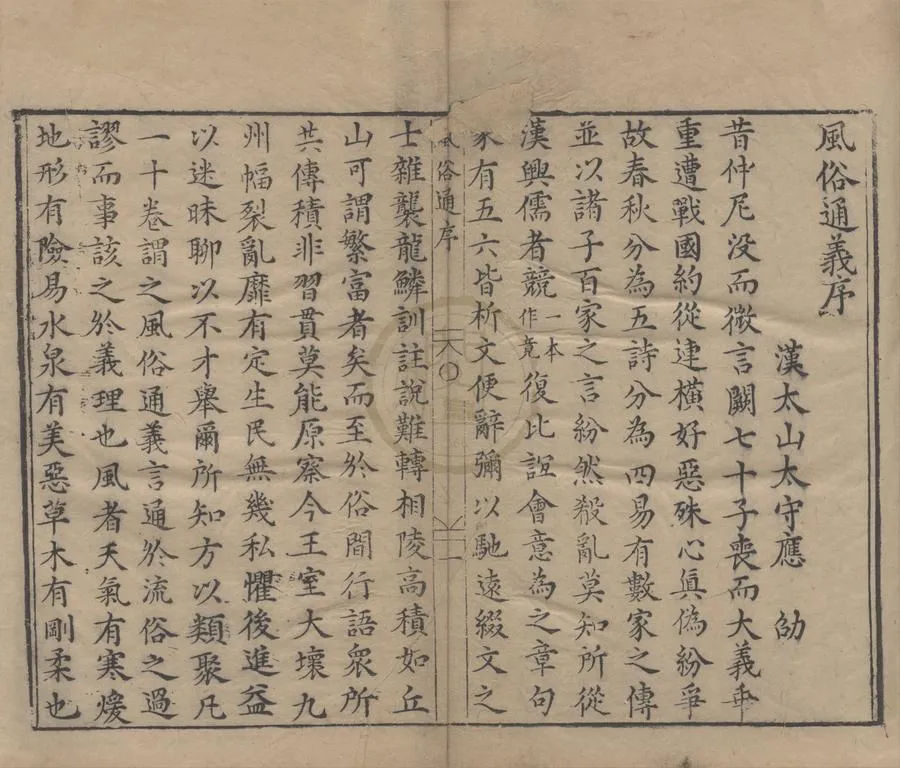 風俗通義序
漢太山太守應 劭
昔仲尼没而微言闕七十子喪而大義乖
重遭戰國約從連横好惡殊心眞偽紛爭
故春秋分為五詩分為四易有數家之傳
並以諸子百家之言紛然殽亂莫知所從
漢興儒者競一本作竟復比誼會意為之章句
家有五六皆析文便辭彌以馳遠綴文之
風俗通序
士雜襲龍鱗訓註說難轉相陵高積如丘
山可謂繁富者矣而至於俗間行語衆所
共傳積非習貫莫能原察今王室大壞九
州幅裂亂靡有定生民無幾私懼後進益
以迷昧聊以不才舉爾所知方以類聚凡
一十卷謂之風俗通義言通於流俗之過
謬而事該之於義理也風者天氣有寒煖
地形有險易水泉有美惡草木有剛柔也